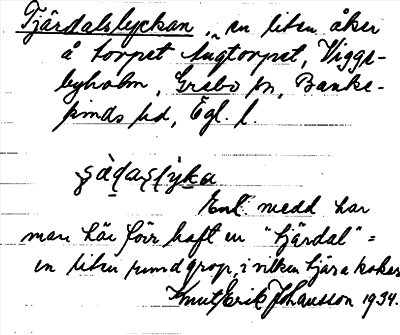 Tjärdalslyckan, en liten åker
å torpet Lugtorpet, Vigge-
byholm, Grebo sn, Banke-
kinds hd, Ögl. l.
Enl. medd har
man här förr haft en "tjärdal" =
en liten rund grop, i vilken tjära kokas
Knut Erik Johansson 1934.